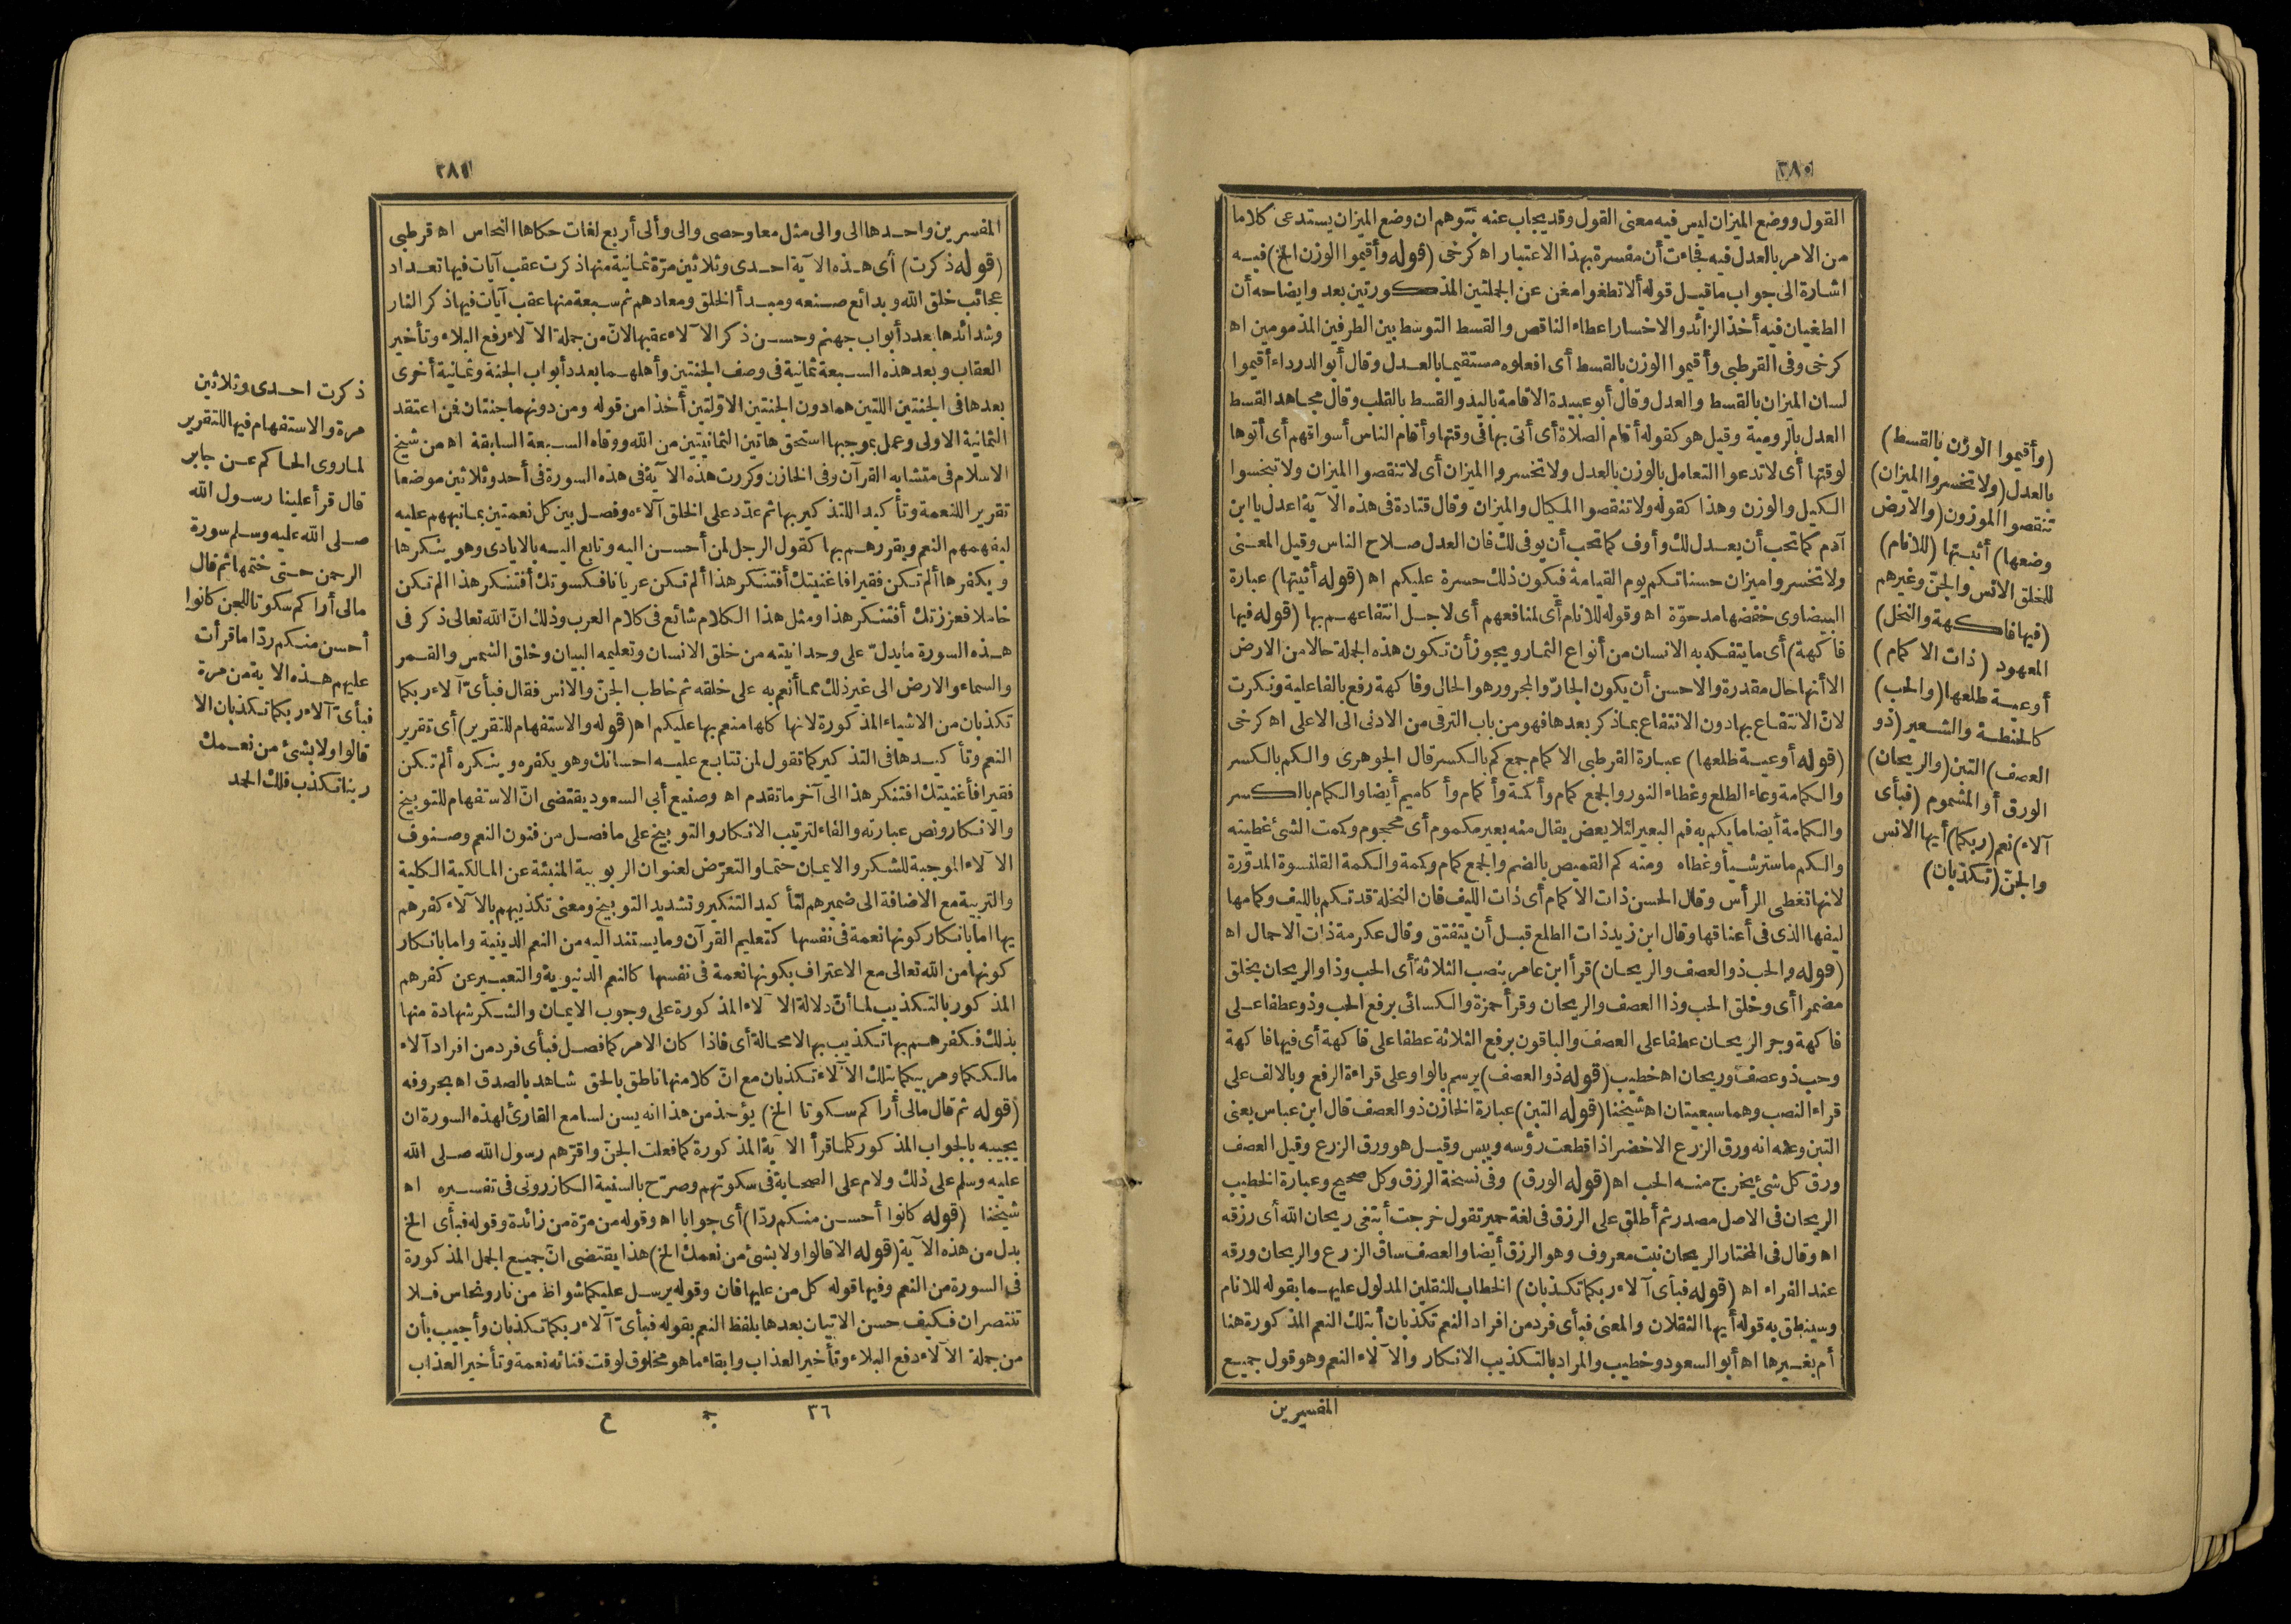 ٢٨٠
القول ووضع الميزان ليس فيه معنى القول وقد يجاب عنه بتوهم ان وضع الميزان يستدعى كلاما
من الامر بالعدل فيه فجاءت أن مفسرة بهذا الاعتبار اه كرخى (قوله وأقيموا الوزن الخ) فيه
اشارة الى جواب ما قيل قوله ألا تطغوا مغن عن الجملتين المذكورتين بعد وايضاحه أن
الطغيان فيه أخذ الزائد والاخسار اعطاء الناقص والقسط التوسط بين الطرفين المذمومين اه
كرخى وفى القرطبى وأقيموا الوزن بالقسط أى افعلوه مستقيما بالعدل وقال أبو الدرداء أقيموا
لسان الميزان بالقسط والعدل وقال أبو عبيدة الاقامة باليد والقسط بالقلب وقال مجاهد القسط
العدل بالرومية وقيل هو كقوله أقام الصلاة أى أتى بها فى وقتها وأقام الناس أسواقهم أى أتوها
لوقتها أى لا تدعوا التعامل بالوزن بالعدل ولا تخسروا الميزان أى لا تنقصوا الميزان ولا تبخسوا
الكيل والوزن وهذا كقوله ولا تنقصوا المكيال والميزان وقال قتادة فى هذه الآية اعدل يا ابن
آدم كما تحب أن يعدل لك وأوف كما تحب أن يوفى لك فان العدل صلاح الناس وقيل المعنى
ولا تخسروا ميزان حسناتكم يوم القيامة فيكون ذلك حسرة عليكم اه (قوله أثبتها) عبارة
البيضاوى خفضها مدحوّة اه وقوله للانام أى لمنافعهم أى لاجل انتفاعهم بها (قوله فيها
فاكهة) أى ما يتفكه به الانسان من أنواع الثمار ويجوز أن تكون هذه الجملة حالا من الارض
الا أنها حال مقدرة والاحسن أن يكون الجارّ والمجرور هو الحال وفاكهة رفع بالفاعلية ونكرت
لانّ الانتفاع بها دون الانتفاع بما ذكر بعدها فهو من باب الترقى من الادنى الى الاعلى اه كرخى
(قوله أوعية طلعها) عبارة القرطبى الاكمام جمع كم بالكسر قال الجوهرى والكم بالكسر
والكمامة وعاء الطلع وغطاء النور والجمع كمام وأكمة وأكمام وأكاميم أيضا والكمام بالكسر
والكمامة أيضا ما يكم به فم البعير لئلا يعض يقال منه بعير مكموم أى محجوم وكممت الشئ غطيته
والكم ما ستر شيأ وغطاه ومنه كم القميص بالضم والجمع كمام وكمة والكمة القلنسوة المدوّرة
لانها تغطى الرأس وقال الحسن ذات الاكمام أى ذات الليف فان النخلة قد تكم بالليف وكمامها
ليفها الذى فى أعناقها وقال ابن زيد ذات الطلع قبل أن يتفتق وقال عكرمة ذات الاحمال اه
(قوله والحب ذو العصف والريحان) قرأ ابن عامر بنصب الثلاثة أى الحب وذا والريحان بخلق
مضمرا أى وخلق الحب وذا العصف والريحان وقرأ حمزة والكسائى برفع الحب وذو عطفا على
فاكهة وجر الريحان عطفا على العصف والباقون برفع الثلاثة عطفا على فاكهة أى فيها فاكهة
وحب ذو عصف وريحان اه خطيب (قوله ذو العصف) يرسم بالواو على قراءة الرفع وبالالف على
قراءة النصب وهما سبعيتان اه شيخنا (قوله التبن) عبارة الخازن ذو العصف قال ابن عباس يعنى
التبن وعنه انه ورق الزرع الاخضر اذا قطعت رؤسه ويبس وقيل هو ورق الزرع وقيل العصف
ورق كل شئ يخرج منه الحب اه (قوله الورق) وفى نسخة الرزق وكل صحيح وعبارة الخطيب
الريحان فى الاصل مصدر ثم أطلق على الرزق فى لغة حمير تقول خرجت أبتغى ريحان الله أى رزقه
اه وقال فى المختار الريحان نبت معروف وهو الرزق أيضا والعصف ساق الزرع والريحان ورقه
عند الفراء اه (قوله فبأى آلاء ربكما تكذبان) الخطاب للثقلين المدلول عليهما بقوله للانام
وسينطق به قوله أيها الثقلان والمعنى فبأى فرد من افراد النعم تكذبان أبتلك النعم المذكورة هنا
أم بغيرها اه أبو السعود وخطيب والمراد بالتكذيب الانكار والآلاء النعم وهو قول جميع
المفسرين
(وأقيموا الوزن بالقسط)
بالعدل (ولا تخسروا الميزان)
تنقصوا الموزون (والارض
وضعها) أثبتها (للانام)
للخلق الانس والجنّ وغيرهم
(فيها فاكهة والنخل)
المعهود (ذات الاكمام)
أوعية طلعها (والحب)
كالحنطة والشعير (ذو
العصف) التبن (والريحان)
الورق أو المشموم (فبأى
آلاء) نعم (ربكما) أيها الانس
والجنّ (تكذبان)
٢٨١
المفسرين واحدها الى والى مثل معا وحصى والى وألى أربع لغات حكاها النحاس اه قرطبى
(قوله ذكرت) أى هذه الآية احدى وثلاثين مرّة ثمانية منها ذكرت عقب آيات فيها تعداد
عجائب خلق الله وبدائع صنعه ومبدأ الخلق ومعادهم ثم سبعة منها عقب آيات فيها ذكر النار
وشدائدها بعدد أبواب جهنم وحسن ذكر الآلاء عقبها لانّ من جملة الآلاء رفع البلاء وتأخير
العقاب وبعد هذه السبعة ثمانية فى وصف الجنتين وأهلهما بعدد أبواب الجنة وثمانية أخرى
بعدها فى الجنتين اللتين هما دون الجنتين الاوّلتين أخذا من قوله ومن دونهما جنتان فمن اعتقد
الثمانية الاولى وعمل بموجبها استحق هاتين الثمانيتين من الله ووقاه السبعة السابقة اه من شيخ
الاسلام فى متشابه القرآن وفى الخازن وكررت هذه الآية فى هذه السورة فى أحد وثلاثين موضعا
تقريرا للنعمة وتأكيدا للتذكير بها ثم عدّد على الخلق آلاءه وفصل بين كل نعمتين بما نبههم عليه
ليفهمهم النعم ويقررهم بها كقول الرجل لمن أحسن اليه وتابع اليه بالايادى وهو ينكرها
ويكفرها ألم تكن فقيرا فاغنيتك أفتنكر هذا ألم تكن عريانا فكسوتك أفتنكر هذا ألم تكن
خاملا فعززتك أفتنكر هذا ومثل هذا الكلام شائع فى كلام العرب وذلك انّ الله تعالى ذكر فى
هذه السورة ما يدلّ على وحدانيته من خلق الانسان وتعليمه البيان وخلق الشمس والقمر
والسماء والارض الى غير ذلك مما أنعم به على خلقه ثم خاطب الجنّ والانس فقال فبأىّ آلاء ربكما
تكذبان من الاشياء المذكورة لانها كلها منعم بها عليكم اه (قوله والاستفهام للتقرير) أى تقرير
النعم وتأكيدها فى التذكير كما تقول لمن تتابع عليه احسانك وهو يكفره وينكره ألم تكن
فقيرا فأغنيتك افتنكر هذا الى آخر ما تقدم اه وصنيع أبى السعود يقتضى انّ الاستفهام للتوبيخ
والانكار ونص عبارته والفاء لترتيب الانكار والتوبيخ على ما فصل من فنون النعم وصنوف
الآلاء الموجبة للشكر والايمان حتما والتعرّض لعنوان الربوبية المنبئة عن المالكية الكلية
والتربية مع الاضافة الى ضميرهم لتأكيد التنكير وتشديد التوبيخ ومعنى تكذيبهم بالآلاء كفرهم
بها اما بانكار كونها نعمة فى نفسها كتعليم القرآن وما يستند اليه من النعم الدينية واما بانكار
كونها من الله تعالى مع الاعتراف بكونها نعمة فى نفسها كالنعم الدنيوية والتعبير عن كفرهم
المذكور بالتكذيب لما أنّ دلالة الآلاء المذكورة على وجوب الايمان والشكر شهادة منها
بذلك فكفرهم بها تكذيب بها لا محالة أى فاذا كان الامر كما فصل فبأى فرد من افراد آلاء
مالككما ومربيكما بتلك الآلاء تكذبان مع انّ كلا منها ناطق بالحق شاهد بالصدق اه بحروفه
(قوله ثم قال مالى أراكم سكوتا الخ) يؤخذ من هذا انه يسن لسامع القارئ لهذه السورة ان
يجيبه بالجواب المذكور كلما قرأ الآية المذكورة كما فعلت الجنّ واقرّهم رسول الله صلى الله
عليه وسلم على ذلك ولام على الصحابة فى سكوتهم وصرّح بالسنية الكازرونى فى تفسيره اه
شيخنا (قوله كانوا أحسن منكم ردّا) أى جوابا اه وقوله من مرّة من زائدة وقوله فبأى الخ
بدل من هذه الآية (قوله الا قالوا ولا بشئ من نعمك الخ) هذا يقتضى انّ جميع الجمل المذكورة
فى السورة من النعم وفيها قوله كل من عليها فان وقوله يرسل عليكما شواظ من نار ونحاس فلا
تنتصران فكيف حسن الاتيان بعدها بلفظ النعم بقوله فبأىّ آلاء ربكما تكذبان وأجيب بأن
من جملة الآلاء دفع البلاء وتأخير العذاب وابقاء ما هو مخلوق لوقت فنائه نعمة وتأخير العذاب
٣٦ ع
ذكرت احدى وثلاثين
مرة والاستفهام فيها للتقرير
لما روى الحاكم عن جابر
قال قرأ علينا رسول الله
صلى الله عليه وسلم سورة
الرحمن حتى ختمها ثم قال
مالى أراكم سكوتا للجن كانوا
أحسن منكم ردّا ما قرأت
عليهم هذه الاية من مرة
فبأىّ آلاء ربكما تكذبان الا
قالوا ولا بشئ من نعمك
ربنا نكذب فلك الحمد